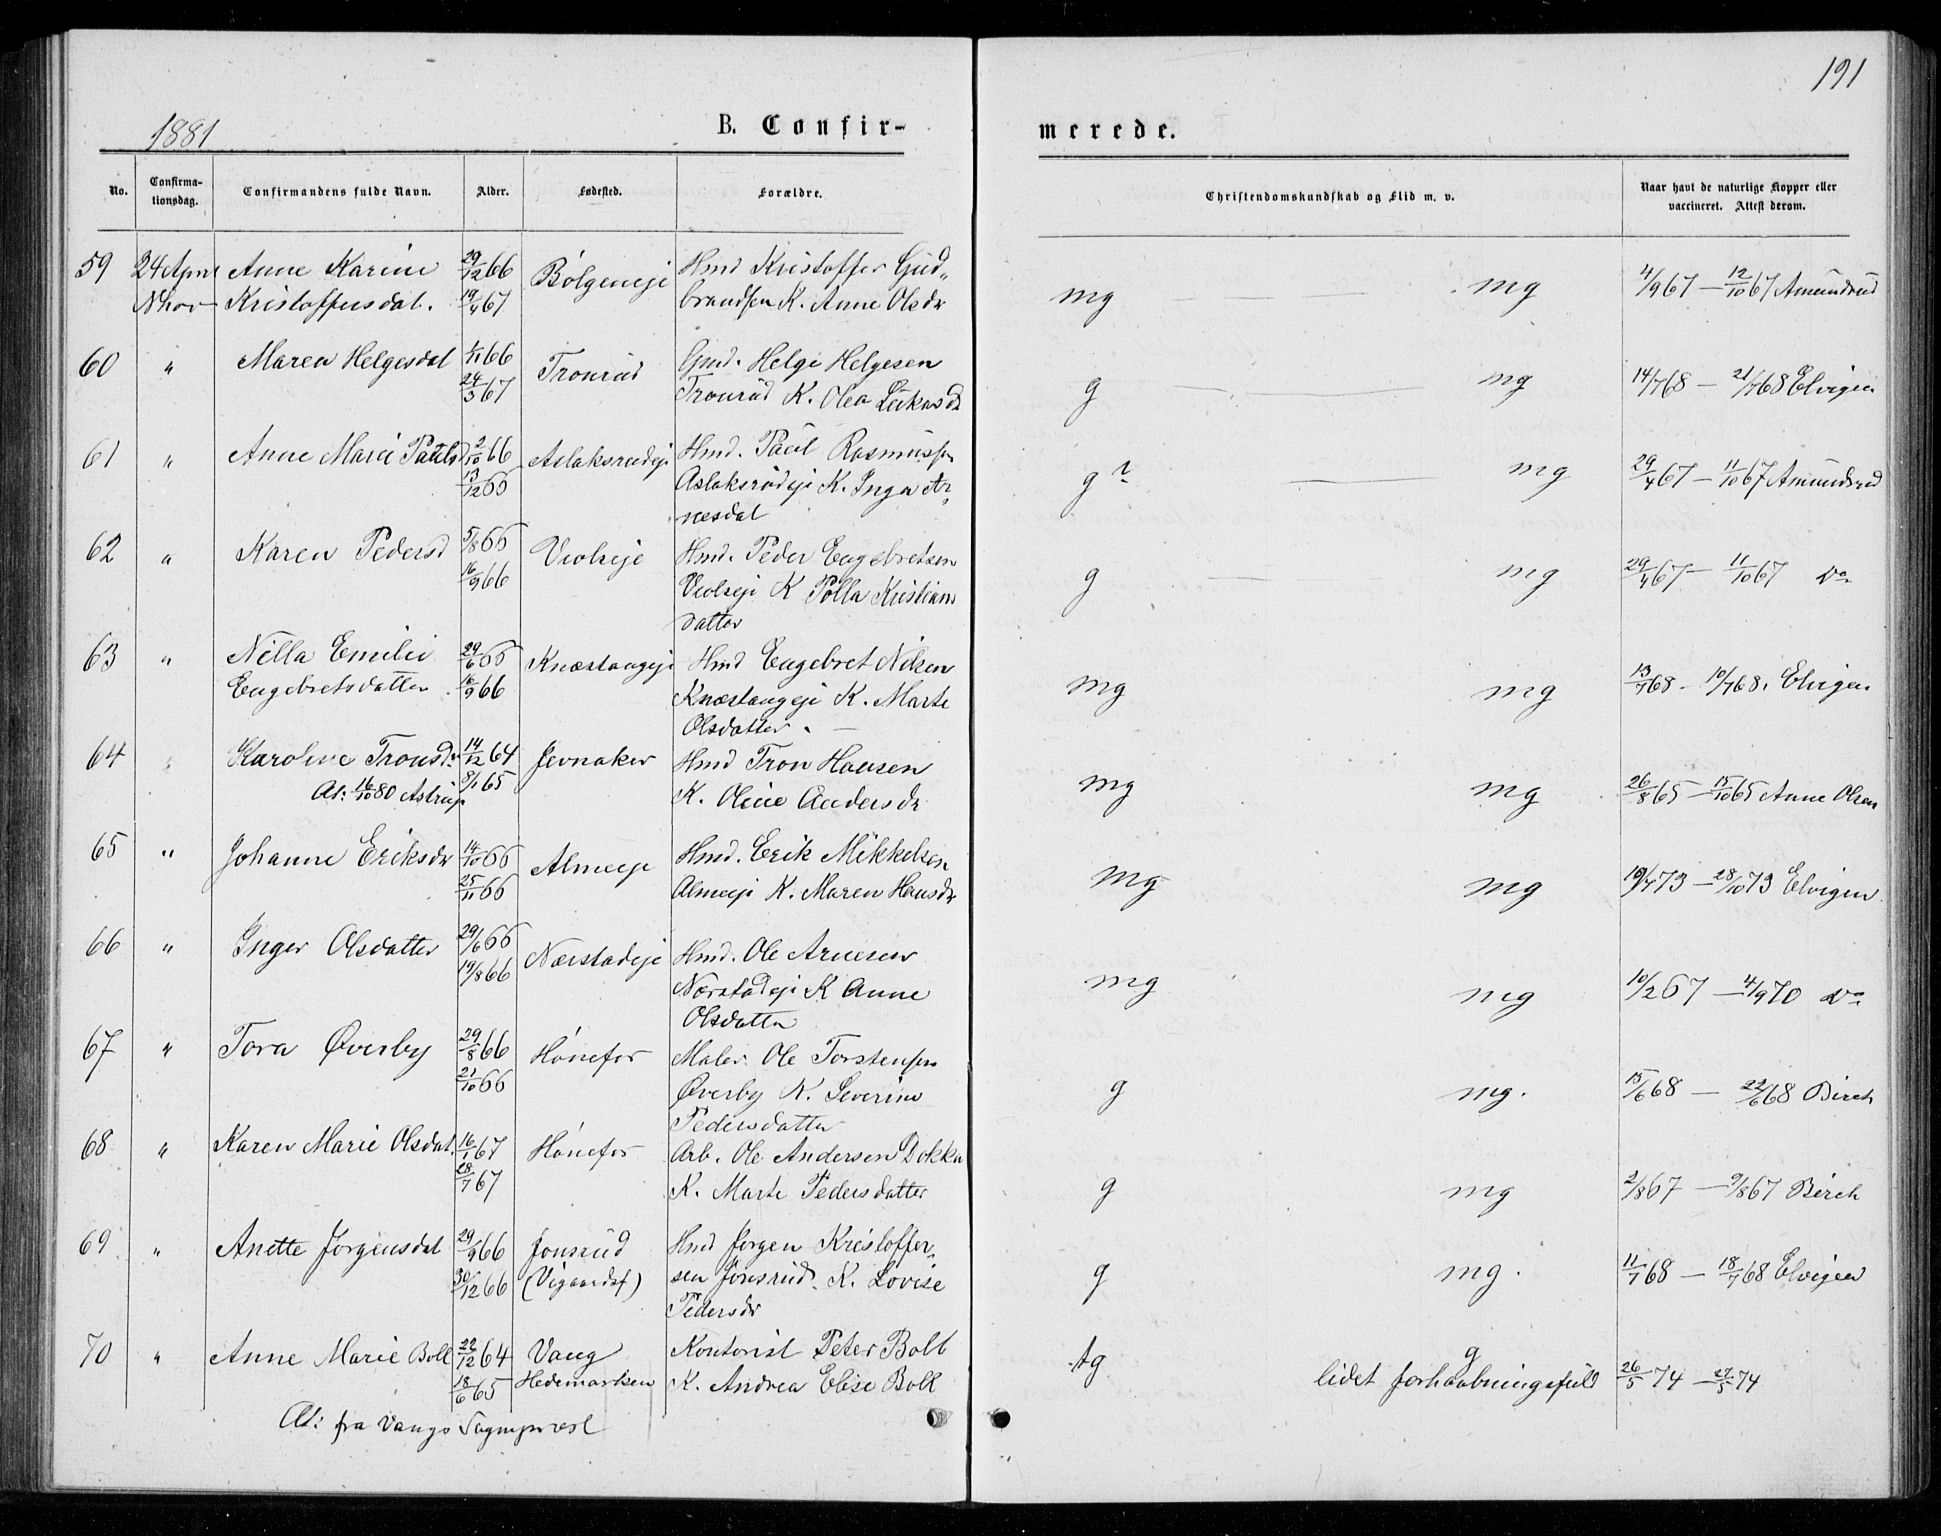 191
1881
B. Confir-
merede.
No.
Confirma-
tionsdag.
Confirmandens fulde Navn.
Alder.
Fødested.
Forældre.
Christendomskundskab og Flid m. v.
Naar havt de naturlige Kopper eller
vaccineret. Attest derom.
59 24 April Anne Karine 29/12 66 Bølgeneje Hmd Kristoffer Gud-
Nhov Kristoffersdat. 19/4 67 brandsen K. Anne Olsdr mg — mg 4/9 67 — 12/10 67 Amundrud
60 " Maren Helgesdat 1/11 66 Tronrud Gmd. Helge Helgesen
24/3 67 Tronrud K. Olea Lukasdr g — — mg 14/7 68 — 21/7 68 Elvigen
61 " Anne Marie Paulsd 2/10 66 Aslaksrudeje Hmd. Paul Rasmussen
13/12 66 Aslaksrudeje K. Inger Ar-
nesdat g? — mg 29/4 67 — 11/10 67 Amundrud
62 " Karen Pedersd 5/8 66 Veolseje Hmd. Peder Engebretsen
16/9 66 Veolseje K Polla Kristians
datter g — mg 29/4 67 — 11/10 67 Do
63 " Nella Emilie 29/6 66 Knæstangeje Hmd Engebret Nilsen
Engebretsdatter 16/9 66 Knæstangeje K. Marte
Olsdatter. — mg mg 13/7 68 — 10/7 68. Elvigen
64 " Karoline Tronsdr 14/12 64 Jevnaker Hmd Tron Hansen
At: 16/10 80 Astrup 8/1 65 K. Oline Andersdr mg mg 26/8 65 — 15/10 65 Anne Olsen
65 " Johanne Eriksdr 14/10 66 Almeje Hmd. Erik Mikkelsen
25/11 66 Almeje K. Maren Hansdr mg mg 19/7 73 — 28/10 73 Elvigen
66 " Inger Olsdatter 29/6 66 Nærstadeje Hmd. Ole Arnesen
19/8 66 Nærstadeje K Anne
Olsdatter mg mg 10/2 67 — 4/9 70 Do
67 " Tora Øverby 29/8 66 Hønefos Maler Ole Torstensen
21/10 66 Øverby K. Severine
Pedersdatter g mg. 15/6 68 — 22/6 68 Birch
68 " Karen Marie Olsdat. 16/1 67 Hønefos Arb. Ole Andersen Dokka
28/7 67 K. Marte Pedersdatter g mg 2/8 67 — 9/8 67 Birch
69 " Anette Jørgensdat 29/9 66 Jonsrud Hmd Jørgen Kristoffer-
30/12 66 (Vigaardsf) sen Jonsrud K. Lovise
Pedersdr g mg. 11/7 68 — 18/7 68 Elvigen
70 " Anne Marie Boll 22/12 64 Vang Kontorist Peter Boll
18/6 65 Hedemarken K. Andrea Elise Boll tg g
lidet forhaabningsfuld 26/5 74 — 27/5 74
At: fra Vangs Sogneprest